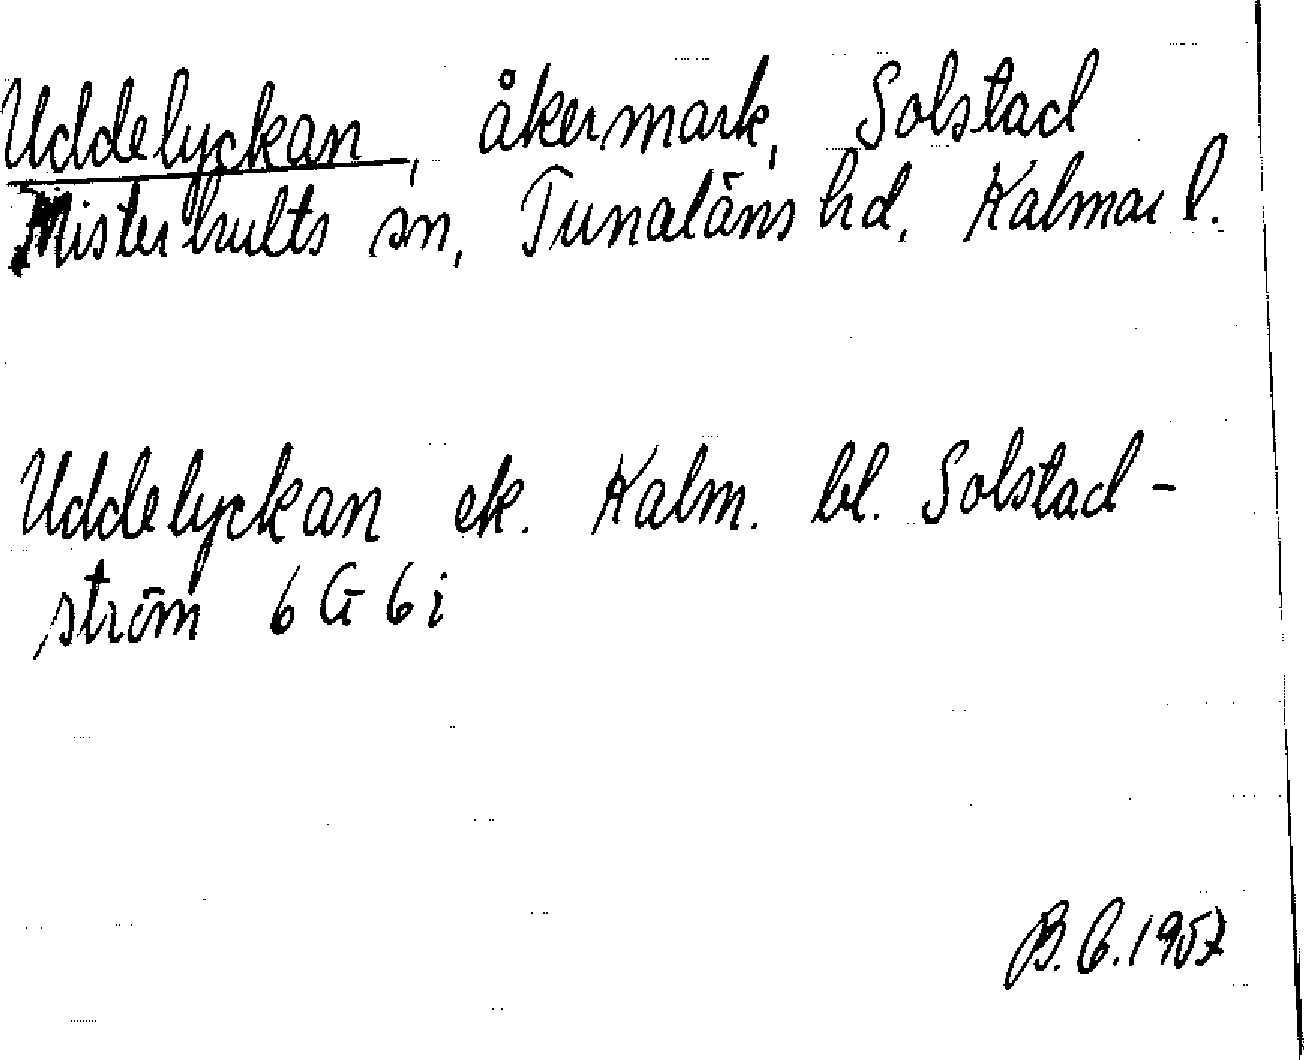 Uddelyckan, åkermark, Solstad
Misterhults sn, Tunaläns hd, Kalmar l.
Uddelyckan ek. Kalm. bl. Solstad-
ström 6 G 6 i
B.C.1957